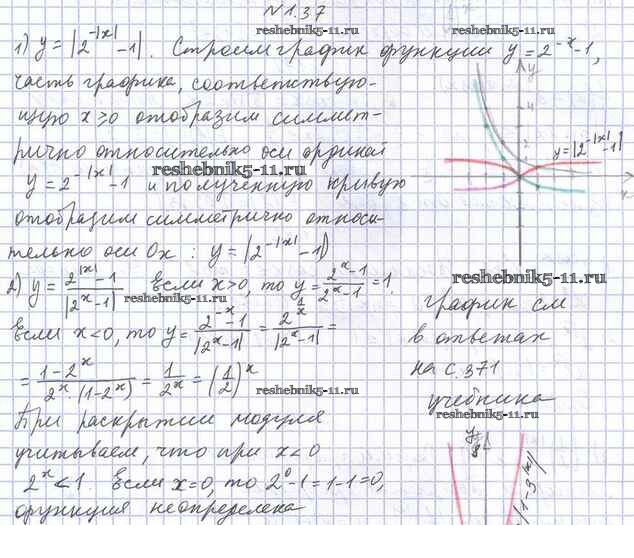 №1.37
1) y = |2^{-|x|} - 1|. Строим график функции y = 2^{-x} - 1,
часть графика, соответствую-
щую x ≥ 0 отобразим симмет-
рично относительно оси ординат
y = 2^{-|x|} - 1 и полученную кривую
отобразим симметрично относи-
тельно оси Ox : y = |2^{-|x|} - 1|
y
4
2
y = |2^{-|x|} - 1|
x
2) y = (2^{|x|} - 1)/|2^x - 1| если x > 0, то y = (2^x - 1)/(2^x - 1) = 1.
если x < 0, то y = (2^{-x} - 1)/|2^x - 1| =
= (1 - 2^x)/(2^x · (1 - 2^x)) = 1/2^x = (1/2)^x
При раскрытии модуля
учитываем, что при x < 0
2^x < 1 Если x = 0, то 2^0 - 1 = 1 - 1 = 0,
функция неопределена
график см
в ответах
на с. 371
учебника
y
8
reshebnik5-11.ru
reshebnik5-11.ru
reshebnik5-11.ru
reshebnik5-11.ru
reshebnik5-11.ru
reshebnik5-11.ru
reshebnik5-11.ru
reshebnik5-11.ru
reshebnik5-11.ru